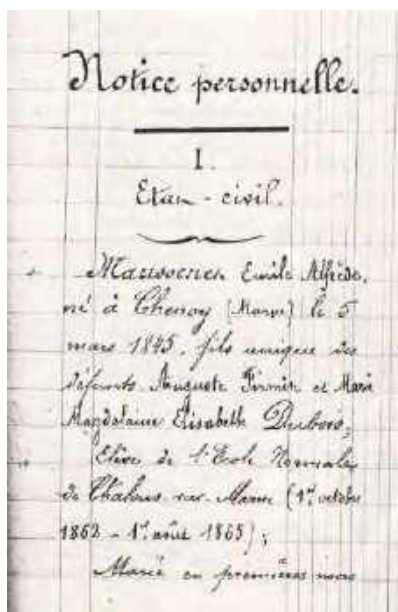 Notice personnelle.
I.
Etat-civil.
Maussenet Emile Alfrède,
né à Chenay (Marne) le 5
mars 1845, fils unique des
défunts Auguste Firmin et Marie
Magdelaine Elisabeth Dubois;
Elève de l'Ecole Normale
de Châlons-sur-Marne (1er octobre
1862 - 1er août 1865);
Marié en premières noces